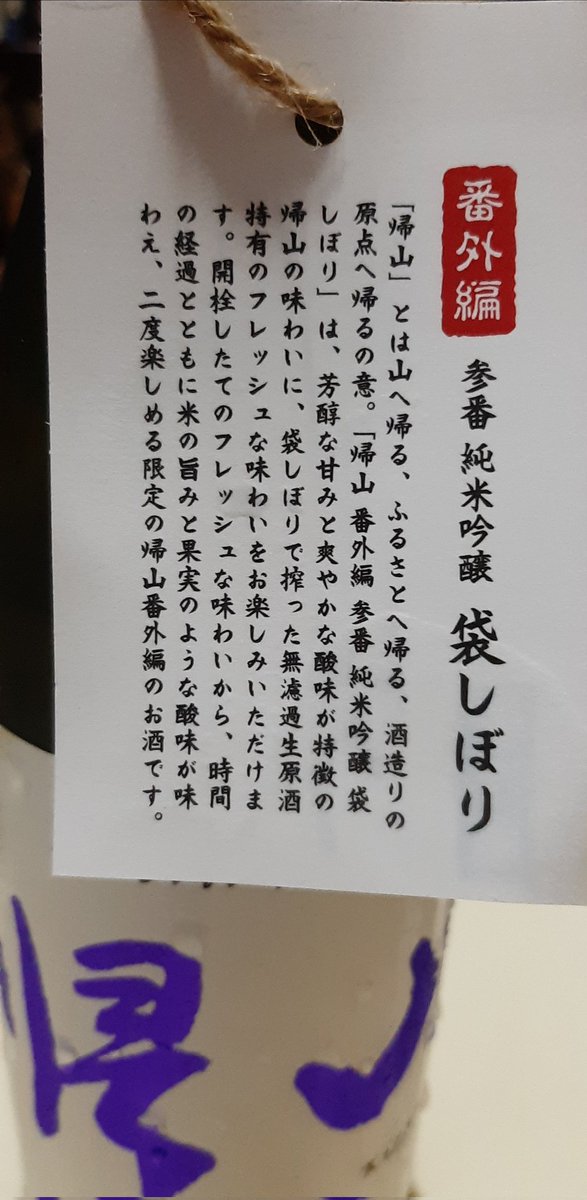 番外編
参番 純米吟醸 袋しぼり
「帰山」とは山へ帰る、ふるさとへ帰る、酒造りの
原点へ帰るの意。「帰山 番外編 参番 純米吟醸 袋
しぼり」は、芳醇な甘みと爽やかな酸味が特徴の
帰山の味わいに、袋しぼりで搾った無濾過生原酒
特有のフレッシュな味わいをお楽しみいただけま
す。開栓したてのフレッシュな味わいから、時間
の経過とともに米の旨みと果実のような酸味が味
わえ、二度楽しめる限定の帰山番外編のお酒です。
帰